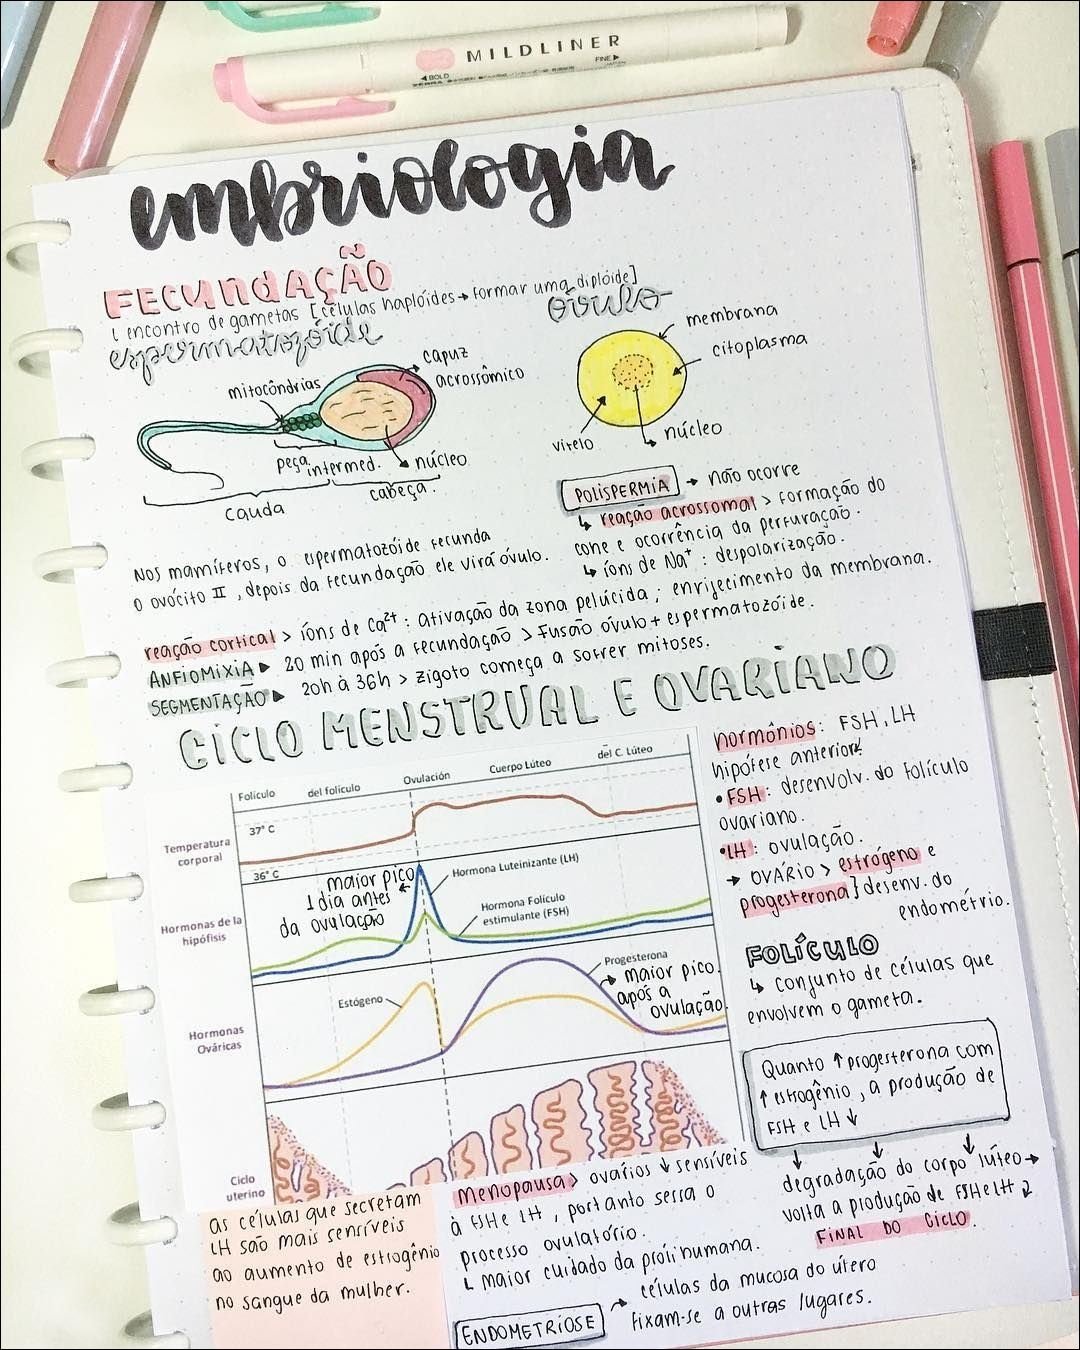 MILDLINER
◄BOLD
FINE►
ZEBRA
embriologia
FECUNDAÇÃO
encontro de gametas [células haplóides → formar uma diplóide]
espermatozóide
óvulo
mitocôndrias
capuz
acrossômico
peça
intermed.
núcleo
cabeça.
cauda
membrana
citoplasma
vitelo
núcleo
Nos mamíferos, o espermatozóide fecunda
o ovócito II, depois da fecundação ele virá óvulo.
POLISPERMIA → não ocorre
↳ reação acrossomal > formação do
cone e ocorrência da perfuração.
↳ íons de Na⁺: despolarização.
reação cortical > íons de Ca²⁺: ativação da zona pelúcida; enrijecimento da membrana.
ANFIOMIXIA ► 20 min após a fecundação > Fusão óvulo + espermatozóide.
SEGMENTAÇÃO ► 20h à 36h > zigoto começa a sofrer mitoses.
CICLO MENSTRUAL E OVARIANO
Folículo
del folículo
Ovulación
Cuerpo Lúteo
del C. Lúteo
Temperatura
corporal
37° C
36° C
Hormonas de la
hipófisis
maior pico
1 dia antes
da ovulação
Hormona Luteinizante (LH)
Hormona Folículo
estimulante (FSH)
Hormonas
Ováricas
Estógeno
Progesterona
→ maior pico
após a
ovulação
Ciclo
uterino
hormônios: FSH, LH
hipófese anterior
• FSH: desenvolv. do folículo
ovariano.
• LH: ovulação.
→ OVÁRIO > estrógeno e
progesterona] desenv. do
endométrio.
FOLÍCULO
↳ conjunto de células que
envolvem o gameta.
Quanto ↑ progesterona com
↑ estrogênio, a produção de
FSH e LH ↓
degradação do corpo lúteo →
volta a produção de FSH e LH
FINAL DO CICLO.
as células que secretam
LH são mais sensíveis
ao aumento de estrogênio
no sangue da mulher.
menopausa > ovários ↓ sensíveis
à FSH e LH, portanto sessa o
processo ovulatório.
↳ maior cuidado da próli humana.
ENDOMETRIOSE → células da mucosa do útero
fixam-se a outras lugares.